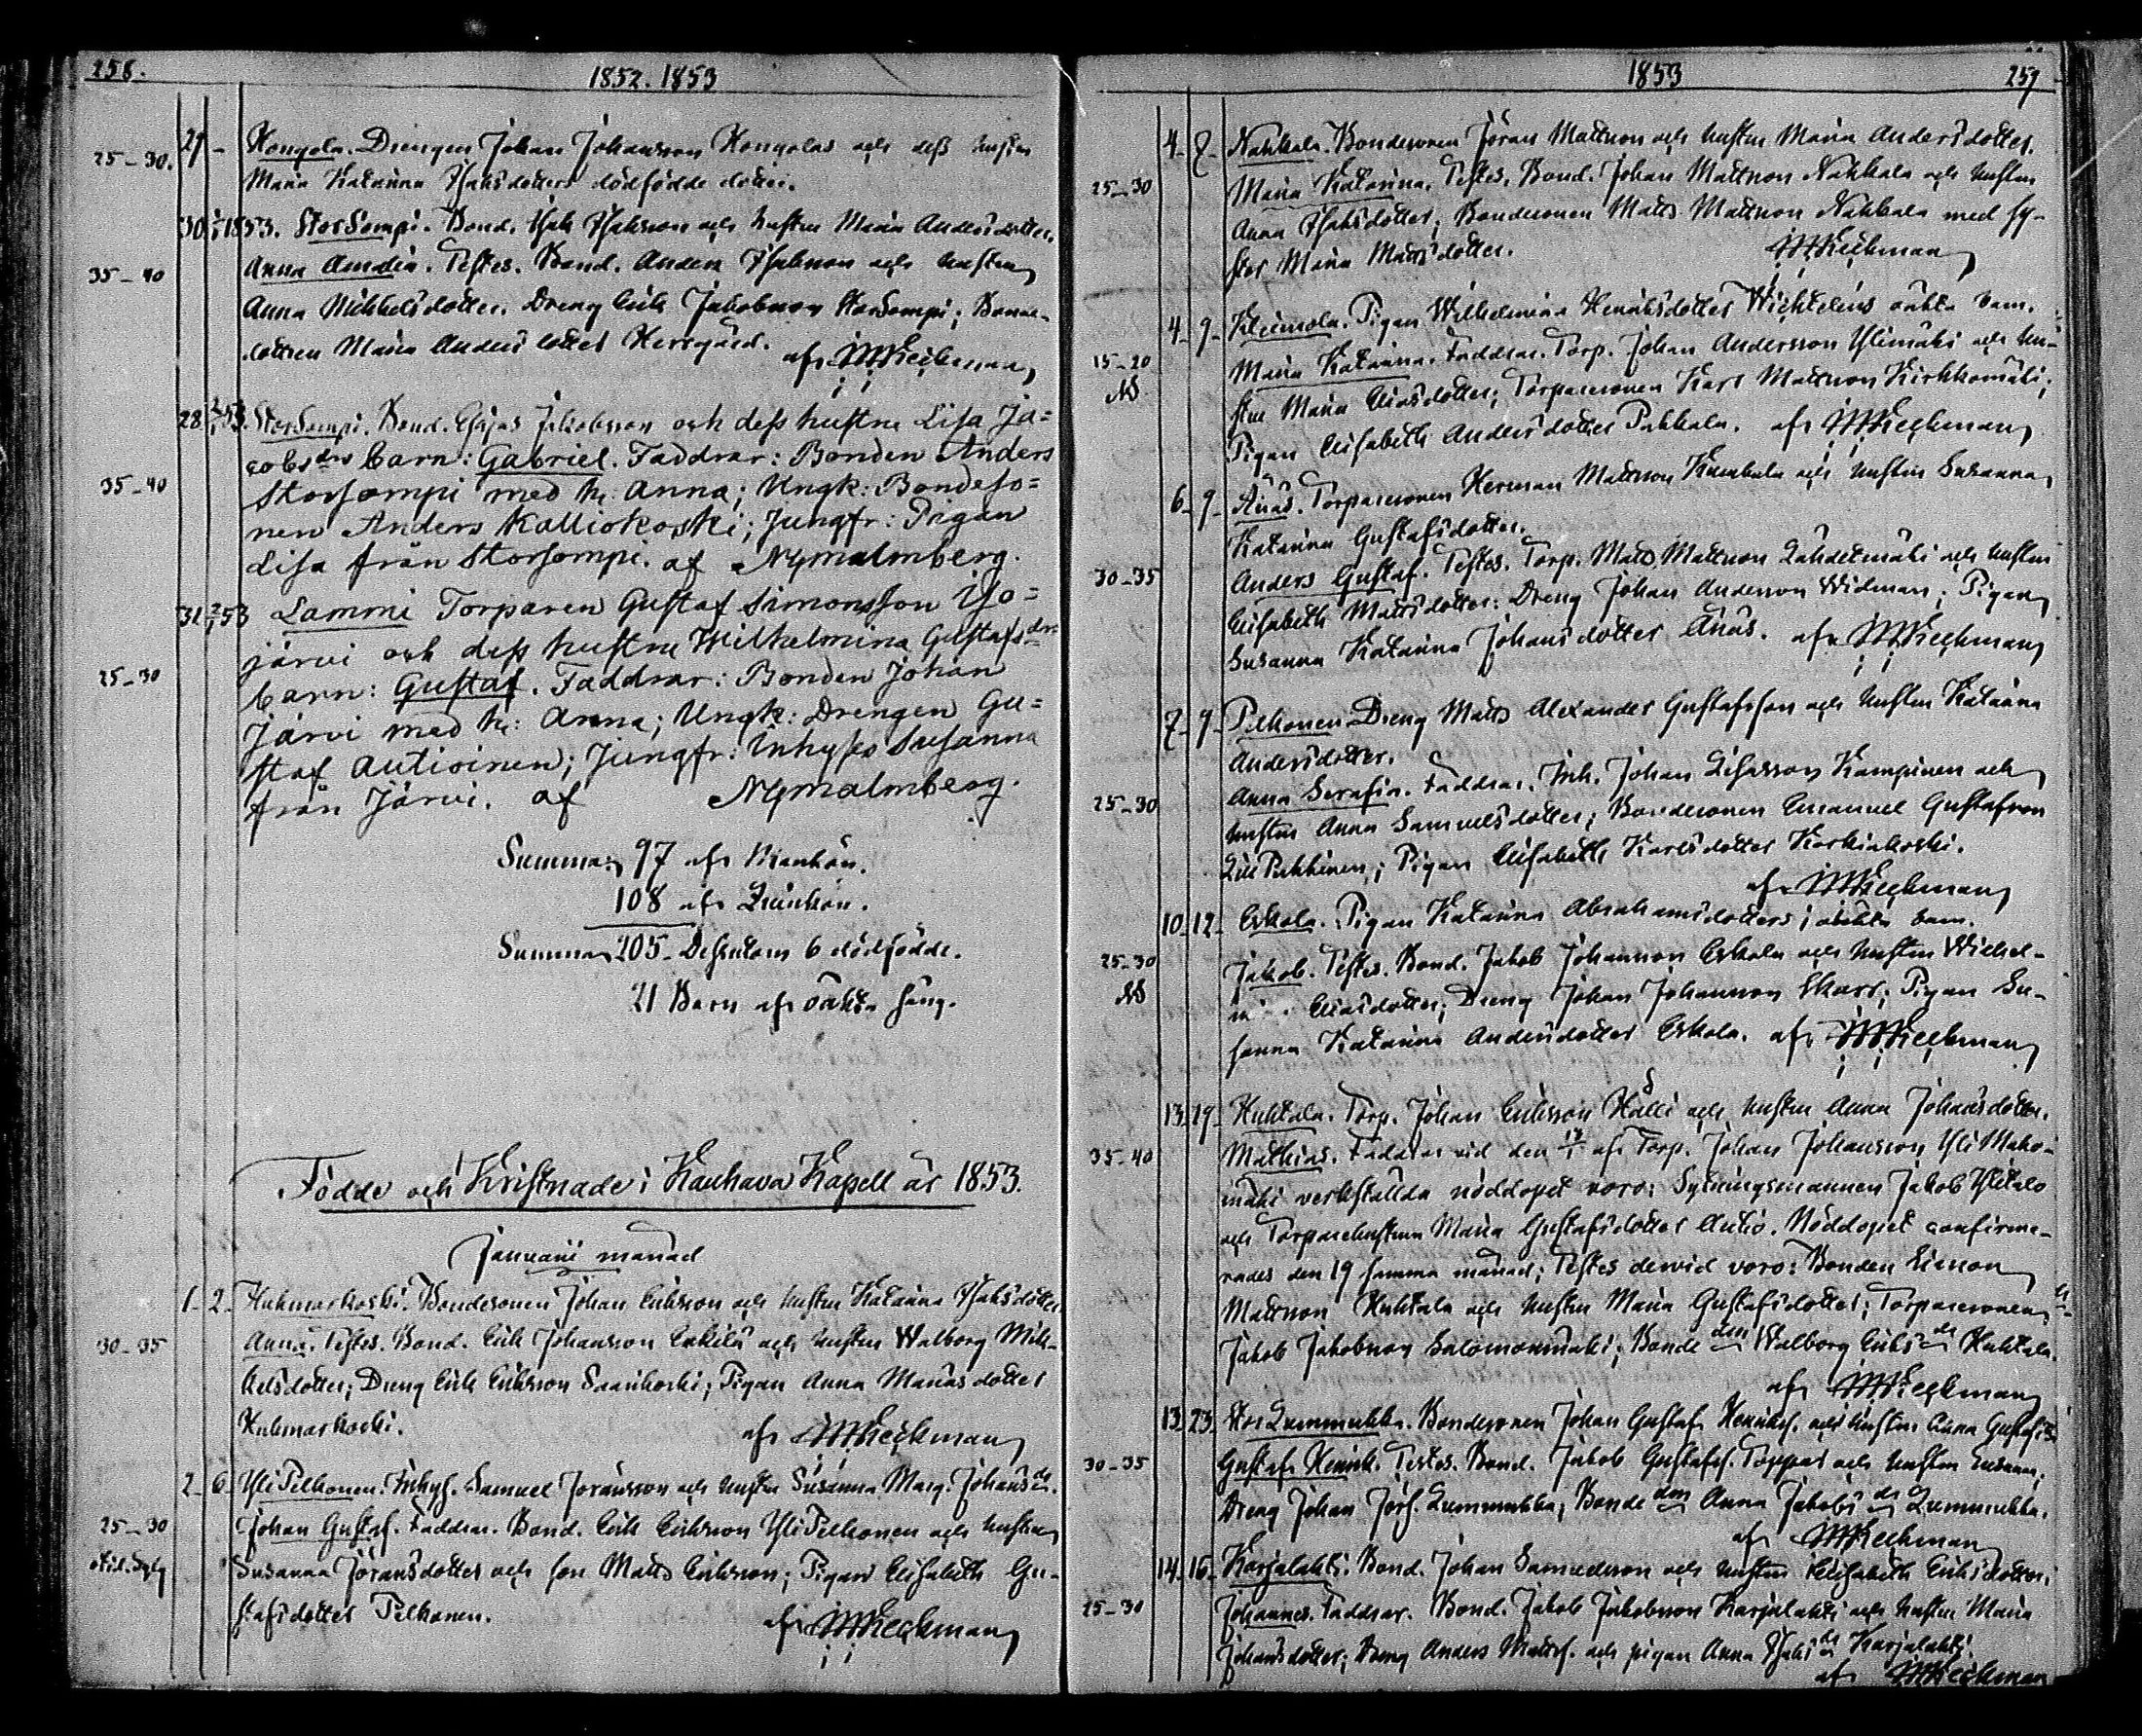 258.
1852. 1853
29 - Hongola. Drengen Johan Johansson Hongolas och dess hustru
25-30.
Maria Katarina Isaksdotters dödfödde dotter.
30 1/1 1853. StorSompi. Bond. Isak Isaksson och hustru Maria Andersdotter.
35-40
Anna Amalia. Testes. Bond. Anders Isaksson och hustru
Anna Mickelsdotter. Dreng Erik Jakobsson StorSompi; Bonde-
dottren Maria Andersdotter Herrgård. af
28 2/1 53. StorSompi. Bond. Esajas Jakobsson och dess hustru Lisa Ja=
cobsdrs barn: Gabriel. Faddrar: Bonden Anders
35-40
Storsompi med h. Anna; Ungk: Bondeso=
nen Anders Kalliokoski; Jungfr: Pigan
Lisa från Storsompi. af Nymalmberg.
31 2/1 53 Lammi Torparen Gustaf Simonsson Iso=
järvi och dess hustru Wilhelmina Gustafsdrs
25-30
barn: Gustaf. Faddrar: Bonden Johan
Järvi med h: Anna; Ungk: Drengen Gu=
staf Autioinen; Jungfr: Inhyses Susanna
från Järvi. af Nymalmberg.
Summa 97 af Mankön.
108 af Qvinkön.
Summa 205. Dessutom 6 dödfödde.
21 Barn af oäkta säng.
Födde och Kristnade i Kauhava Kapell år 1853.
Januarii månad
1 - 2 - Huhmarkoski. Bondesonen Johan Eriksson och hustru Katarina Isaksdotter
30-35
Anna. Testes. Bond. Erik Johansson Enkilä och hustru Walborg Mick-
kelsdotter; Dreng Erik Eriksson Saarikoski; Pigan Anna Mariasdotter
Huhmarkoski. af
2 - 6 - YliPelkonen. Inhys. Samuel Joransson och hustru Susanna Marg. Johansdr.
25-30
Johan Gustaf. Faddrar. Bond. Erik Eriksson YliPelkonen och hustru
Susanna Joransdotter och son Matts Eriksson; Pigan Elisabeth Gu-
stafsdotter Pelkonen. af
1853
259
4 - 8 - Nahkala. Bondesonen Joran Mattsson och hustru Maria Andersdotter.
25-30
Maria Katarina. Testes. Bond. Johan Mattsson Nahkala och hustru
Anna Isaksdotter; Bondesonen Matts Mattsson Nahkala med sy-
ster Maria Mattsdotter.
4 - 9 - Kleimola. Pigan Wilhelmina Henriksdotter oäkta barn.
15-20
Maria Katarina. Faddrar. Torp. Johan Andersson Ylimäki och hu-
stru Maria Eliasdotter; Torparesonen Karl Mattsson Kirkkomäki;
Pigan Elisabeth Andersdotter Pukkala. af
6 - 9 - Änäs. Torparesonen Herman Mattsson och hustru Susanna
Katarina Gustafsdotter.
30-35
Anders Gustaf. Testes. Torp. Matts Mattsson Lähdetmäki och hustru
Elisabeth Mattsdotter: Dreng Johan Andersson Widman; Pigan
Susanna Katarina Johansdotter Änäs. af
7 - 9 - Pelkonen Dreng Matts Alexander Gustafsson och hustru Katarina
Andersdotter.
25-30
Anna Serafia. Faddrar. Inh. Johan Kampinen och
hustru Anna Samuelsdotter; Bondesonen Emanuel Gustafsson
; Pigan Elisabeth Karlsdotter Korkiakoski.
af
10 - 12 - Eskola. Pigan Katarina Abrahamsdotters oäkta barn.
25-30
Jakob. Testes. Bond. Jakob Johansson Eskola och hustru Wilhel-
Eliasdotter; Dreng Johan Johansson Skarr; Pigan Su-
sanna Katarina Andersdotter Eskola. af
13 - 19 - Huhtala. Torp. Johan Eriksson Hälli och hustru Anna Johansdotter.
35-40
Mathias. Faddrar vid den af Torp. Johan Johansson
mäki verkstälda nöddopet voro: Sytningsmannen Jakob Ylitalo
och Torparehustrun Maria Gustafsdotter Autio. Nöddopet confirme-
rades den 19 samma månad; Testes dervid voro: Bonden Simon
Mattsson Huhtala och hustru Maria Gustafsdotter; Torparesonen
Jakob Jakobsson Salomonmäki; Bondedtn Walborg Eriksdr Huhtala.
af
13 - 23 - StorLummukka. Bondesonen Johan Gustaf Henriks. och hustru Anna Gustafsdr.
30-35
Gustaf Henrik. Testes. Bond. Jakob Gustafs. Toppar och hustru Susanna;
Dreng Johan Jörs. Lummukka; Bondedtn Anna Jakobsdr Lummukka.
af
14 - 16 - Karjalahti. Bond. Johan Samuelsson och hustru Elisabeth Eriksdotter.
25-30
Johannes. Faddrar. Bond. Jakob Jakobsson Karjalahti och hustru Maria
Johansdotter; Dreng Anders Matts. och pigan Anna Isaksdr Karjalahti.
af